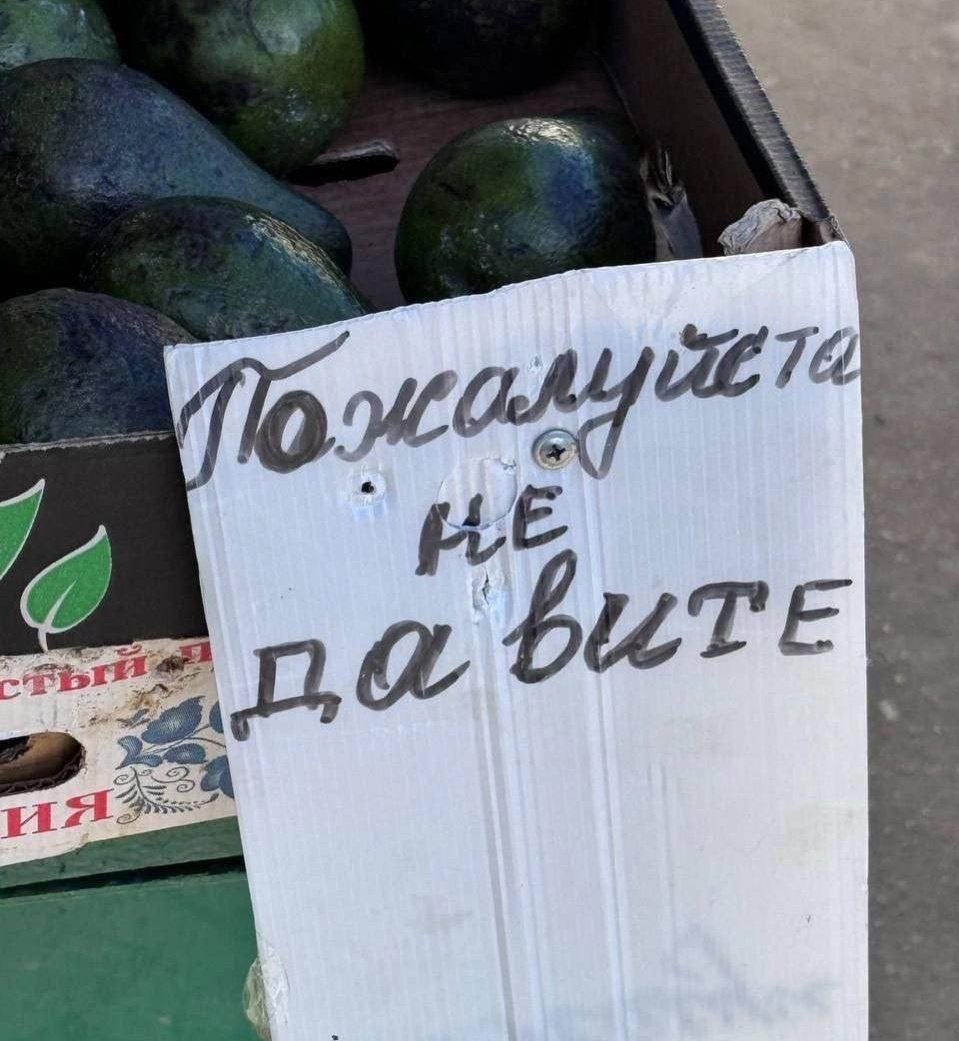 Пожалуйста
не
давите
стый п
ия